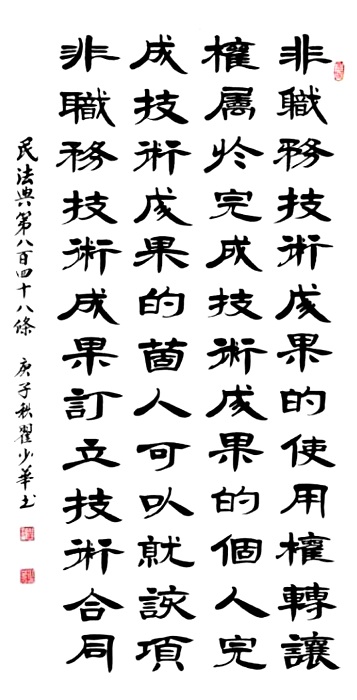 非職務技術成果的使用權轉讓
權属於完成技術成果的個人完
成技術成果的箇人可以就該項
非職務技術成果訂立技術合同
民法典第八百四十八條 庚子秋翟少華書